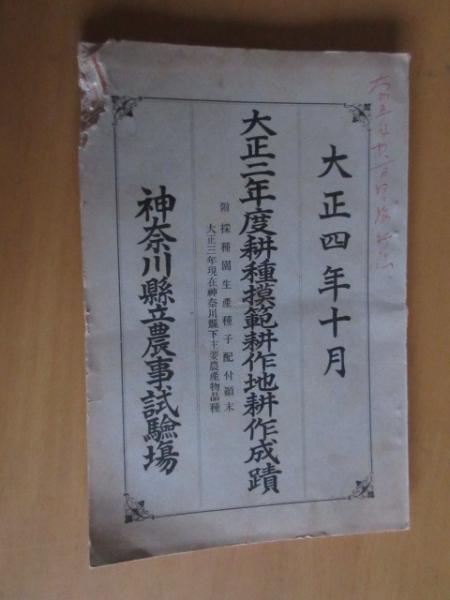 大正四年十月
大正三年度耕種摸範耕作地耕作成蹟
附 採種園生産種子配付顚末
大正三年現在神奈川縣下主要農産物品種
神奈川縣立農事試驗場